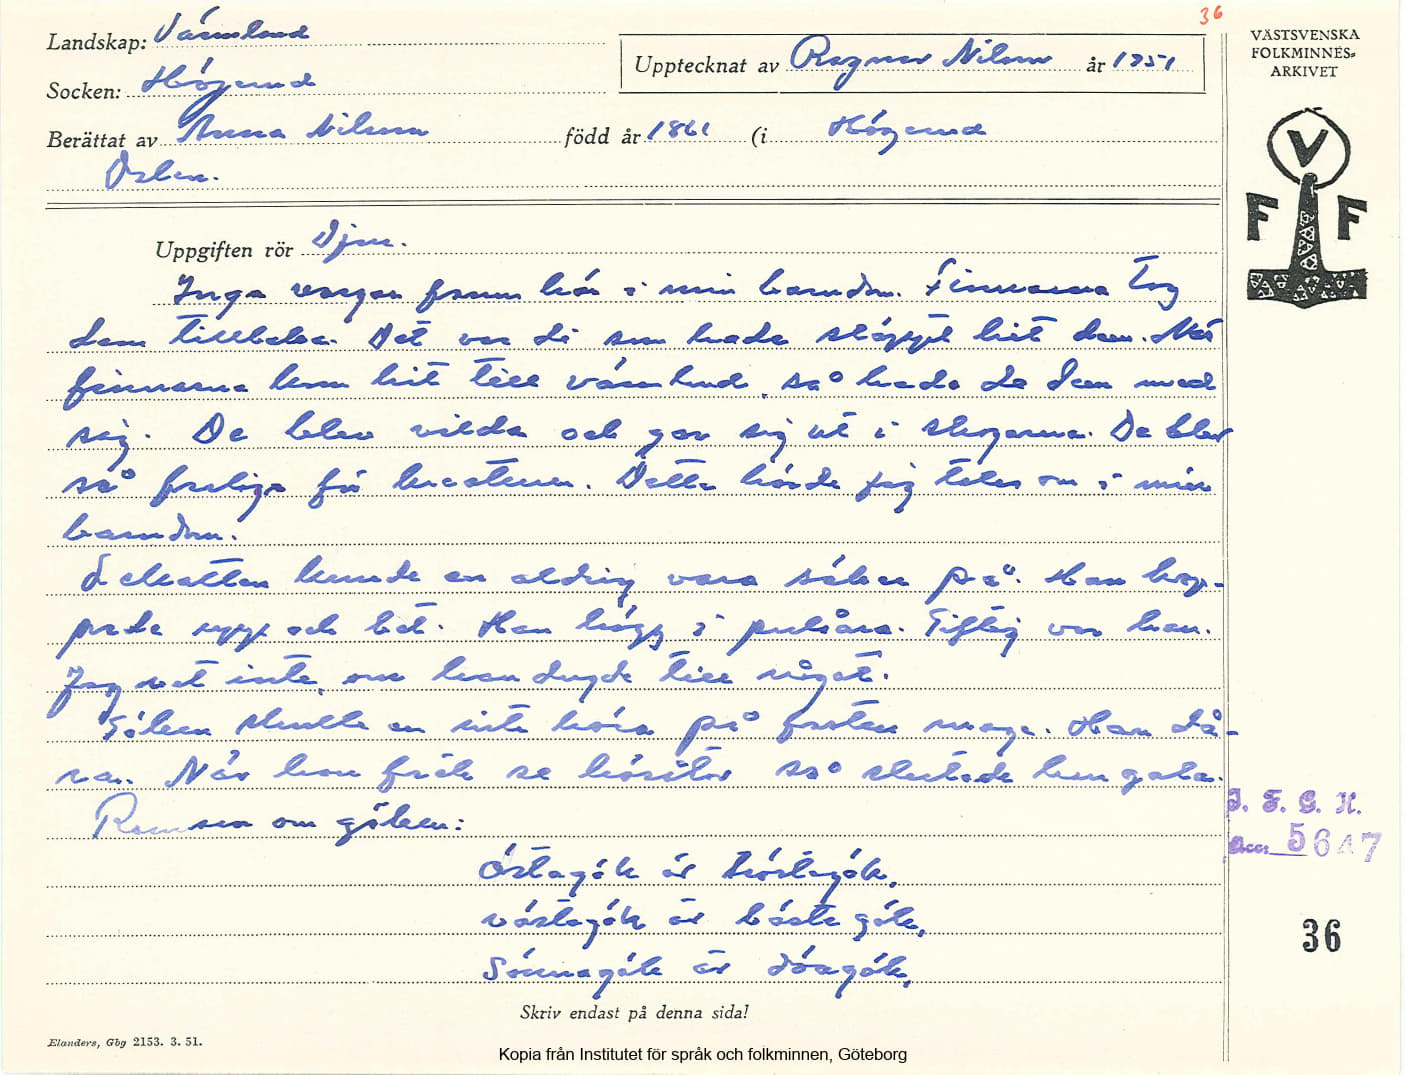 36
Landskap: Värmland
Socken: Högerud
Upptecknat av Ragnar Nilsson år 1951
VÄSTSVENSKA
FOLKMINNES-
ARKIVET
Berättat av Anna Nilsson född år 1861 (i Högerud
V
F F
Uppgiften rör Djur.
Inga vargar fanns här i min barndom. Finnarna tog
dem tillbaka. Det var di som hade släppt hit dem. När
finnarna kom hit till Värmland, så hade de dem med
sig. De blev vilda och gav sig ut i skogarna. De blev
så farliga för kreaturen. Detta hörde jag talas om i min
barndom.
Lekatten kunde en aldrig vara säker på. Han hop-
pade upp och bet. Han högg i pulsåra. Giftig var han.
Jag vet inte, om han dugde till något.
Göken skulle en inte höra på fasten mage. Han då-
ra. När han fick se hösåtor så slutade han gala.
Ramsa om göken:
Östagök är tröstagök,
västagök är bästa gök,
Sönnagök är döagök,
I. F. G. H.
Acc. 5647
36
Skriv endast på denna sida!
Elanders, Gbg 2153. 3. 51.
Kopia från Institutet för språk och folkminnen, Göteborg